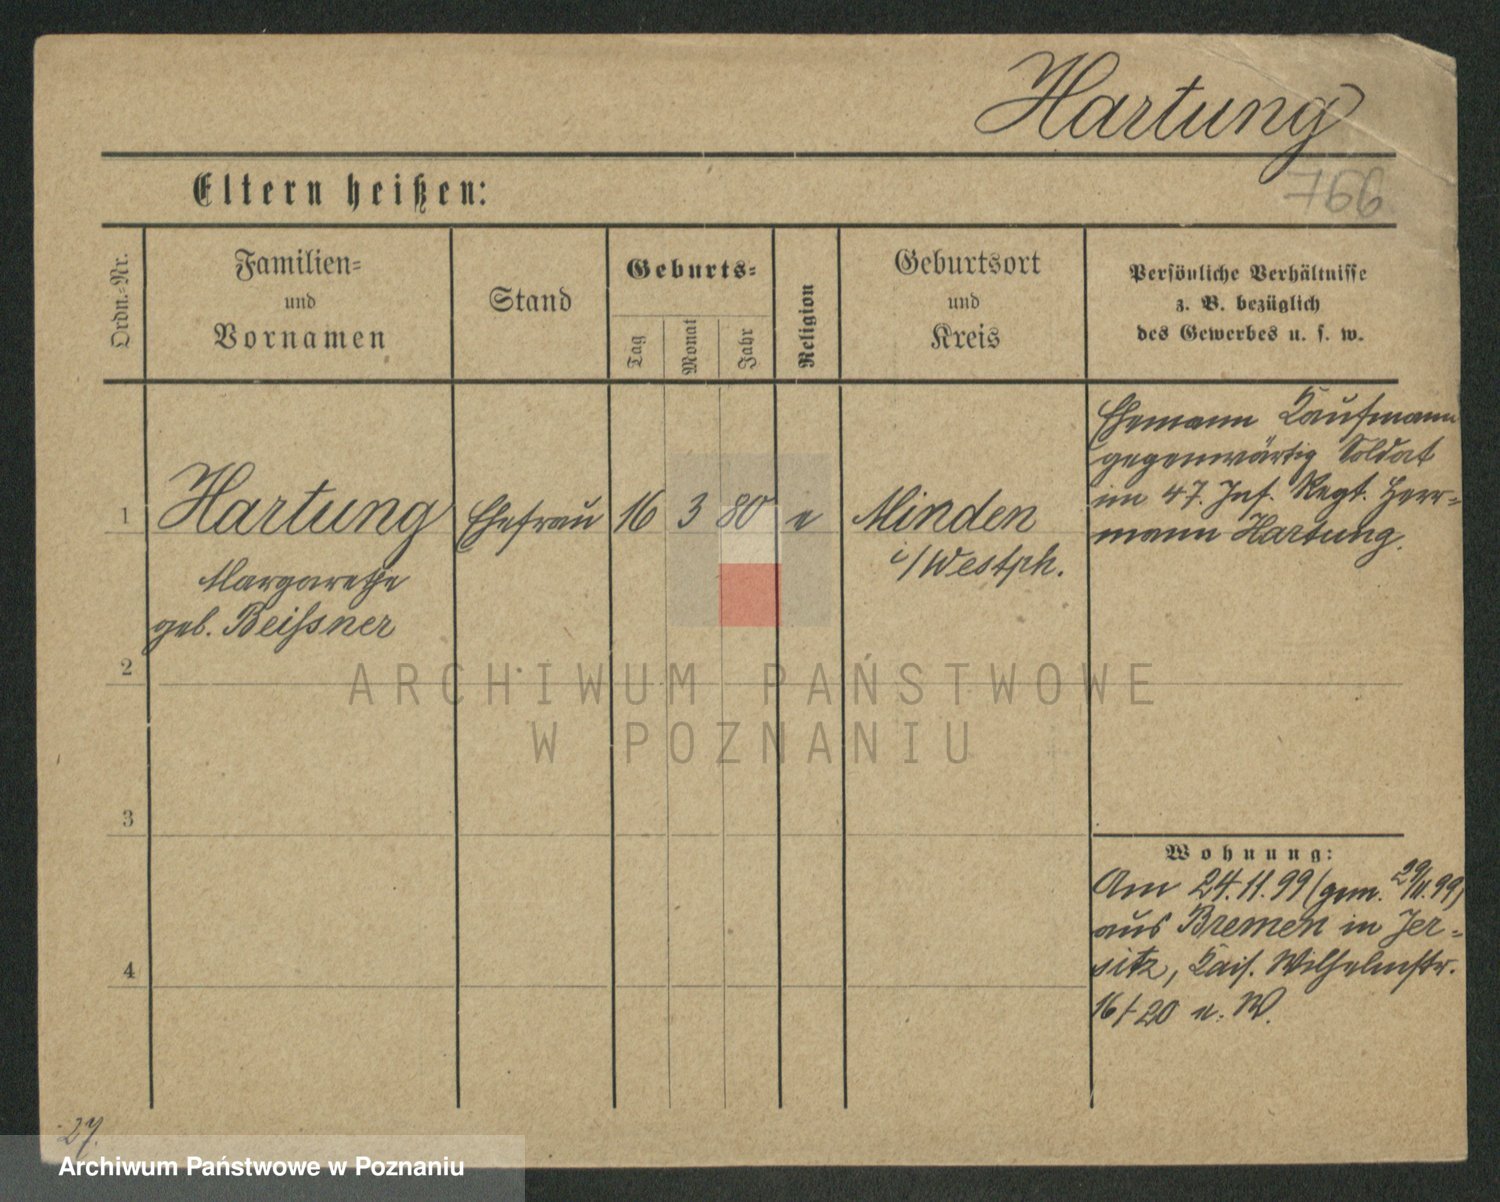 Hartung
766
Eltern heißen:
Ordn.-Nr.
Familien-
und
Vornamen
Stand
Geburts-
Tag
Monat
Jahr
Religion
Geburtsort
und
Kreis
Persönliche Verhältnisse
z. B. bezüglich
des Gewerbes u. s. w.
1
Hartung
Margarethe
geb. Beißner
Ehefrau
16
3
80
e
Minden
i/Westph.
Ehemann Kaufmann
gegenwärtig Soldat
im 47. Inf. Regt. Herr-
mann Hartung.
2
3
4
Wohnung:
Am 24.11.99 (gem. 29/11.99)
aus Bremen in Jer-
sitz, Kais. Wilhelmstr.
16/20 n. W.
27.
ARCHIWUM PAŃSTWOWE
W POZNANIU
Archiwum Państwowe w Poznaniu